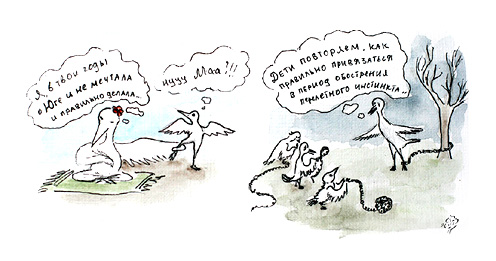 Я в твои годы
о Юге и не мечтала
и правильно делала..
нууу Маа?!!
Дети повторяем, как
правильно привязаться
в период обострения
перелётного инстинкта..